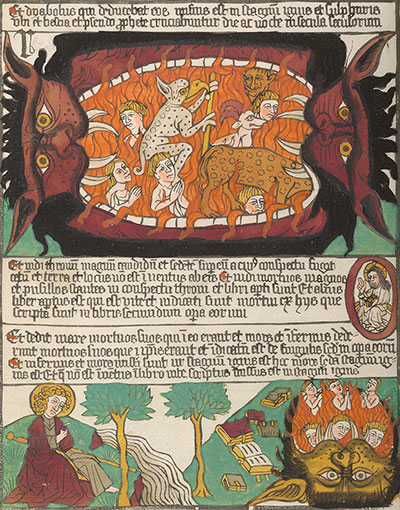 Et dyabolus qui eos missus est in stagnū ignis et sulphuris
ubi et bestia et pseudo prophete cruciabuntur die ac nocte in secula seculorum
Et vidi thronum magnum candidū et sedētē sup eum a cuiꝰ conspectu fugit
et terra et locus nō est inventus ab eis Et vidi mortuos magnos
et pusillos stantes in conspectu throni et libri apti sunt Et alius
liber aptus est qui est vite et iudicati sunt mortui ex hys que
scripta sunt in libris secundum opera eorum
Et dedit mare mortuos suos qui in eo erant et mors et infernus dede
runt mortuos suos que in ipsis erant et iudicatū est de singulis sedm opa eorū
Et infernus et mors missi sunt in stagnū ignis hec mors est stagnū ig
nis et qui nō est invētus in libro vite scriptus missus est in stagnū ignis